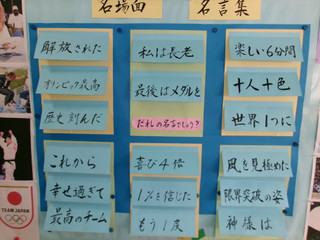 名場面 名言集
解放された
オリンピック最高
歴史刻んだ
私は長老
最後はメダルを
だれの名言でしょう?
楽しい6分間
十人十色
世界1つに
これから
幸せ過ぎて
最高のチーム
喜び4倍
1%を信じた
もう1度
風を見極めた
限界突破の姿
神様は
TEAM JAPAN